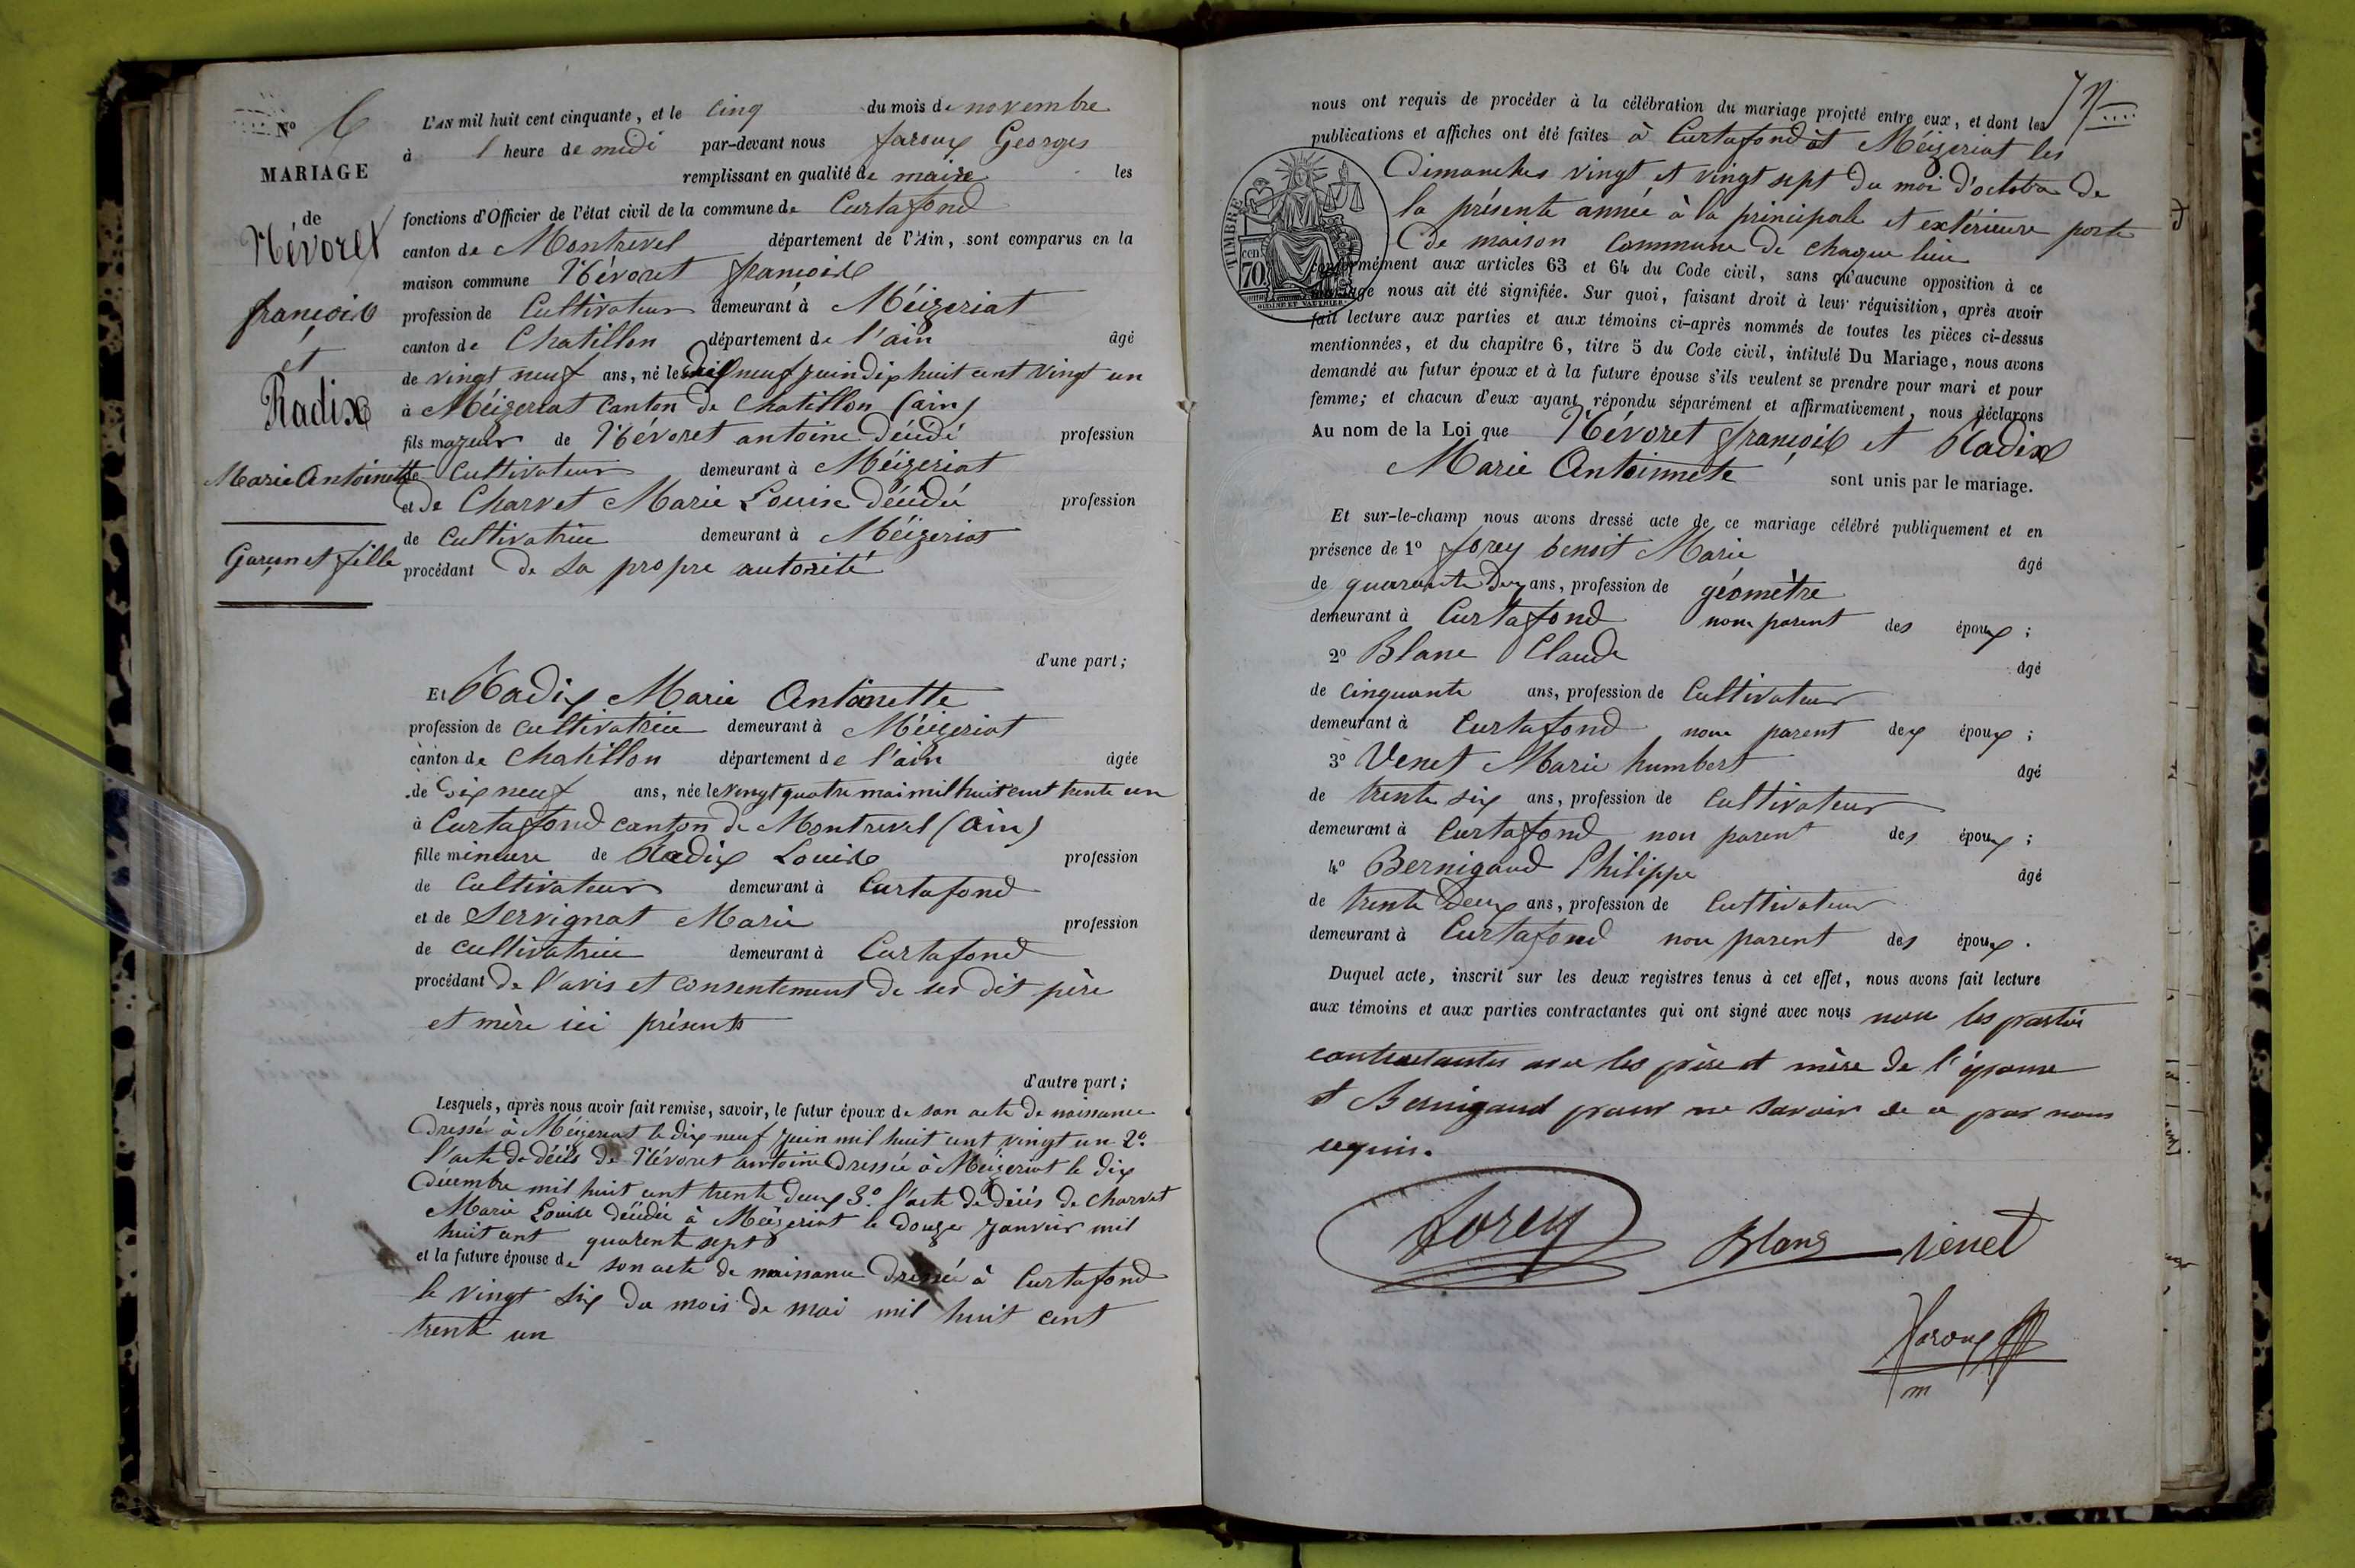 N° 6
MARIAGE
de
Névoret
françois
et
Radix
Marie Antoinette
Garçon et fille
L'AN mil huit cent cinquante, et le cinq du mois de novembre
à 1 heure de midi par-devant nous faroux Georges
remplissant en qualité de maire les
fonctions d'Officier de l'état civil de la commune de Curtafond
canton de Montrevel département de l'Ain, sont comparus en la
maison commune Névoret françois
profession de Cultivateur demeurant à Méizeriat
canton de Chatillon département de l'ain âgé
de vingt neuf ans, né le dix neuf juin dix huit cent vingt un
à Méizeriat Canton de Chatillon (ain)
fils majeur de Névoret antoine décédé profession
de Cultivateur demeurant à Méizeriat
et de Charvet Marie Louise décédé profession
de Cultivatrice demeurant à Méizeriat
procédant de sa propre autorité
d'une part;
Et Radix Marie Antoinette
profession de cultivatrice demeurant à Méizeriat
canton de Chatillon département de l'ain âgée
de dix neuf ans, née le vingt quatre mai mil huit cent trente un
à Curtafond canton de Montrevel (Ain)
fille mineure de Radix Louise
profession
de Cultivateur demeurant à Curtafond
et de Servignat Marie profession
de cultivatrice demeurant à Curtafond
procédant de l'avis et consentement de ses dit père
et mère ici présents
d'autre part;
Lesquels, après nous avoir fait remise, savoir, le futur époux de son acte de naissance
Dressé à Méizeriat le dix neuf juin mil huit cent vingt un 2°
l'acte de décès de Névoret antoine Dressée à Méizeriat le dix
Décembre mil huit cent trente deux 3° l'acte de décès de Charvet
Marie Louise décédée à Méizeriat le douze janvier mil
huit cent quarent sept
et la future épouse de son acte de naissance Dressée à Curtafond
le vingt six du mois de mai mil huit cent
trente un
nous ont requis de procéder à la célébration du mariage projeté entre eux, et dont les
publications et affiches ont été faites à Curtafond et Méizeriat les
Dimanches vingt et vingt sept du moi d'octobre de
la présente année à la principale et extérieure porte
de maison Commune de chaque lieu
TIMBRE
cen.
70
conformément aux articles 63 et 64 du Code civil, sans qu'aucune opposition à ce
mariage nous ait été signifiée. Sur quoi, faisant droit à leur réquisition, après avoir
fait lecture aux parties et aux témoins ci-après nommés de toutes les pièces ci-dessus
mentionnées, et du chapitre 6, titre 5 du Code civil, intitulé Du Mariage, nous avons
demandé au futur époux et à la future épouse s'ils veulent se prendre pour mari et pour
femme; et chacun d'eux ayant répondu séparément et affirmativement, nous déclarons
Au nom de la Loi que Névoret françois et Radix
Marie Antoinnete sont unis par le mariage.
Et sur-le-champ nous avons dressé acte de ce mariage célébré publiquement et en
présence de 1° forey benoit Marie âgé
de quarante Deux ans, profession de géomètre
demeurant à Curtafond non parent des époux;
2° Blanc Claude âgé
de cinquante ans, profession de Cultivateur
demeurant à Curtafond non parent des époux;
3° Venet Marie humbert âgé
de trente six ans, profession de Cultivateur
demeurant à Curtafond non parent des époux;
4° Bernigaud Philippe âgé
de trente Deux ans, profession de Cultivateur
demeurant à Curtafond non parent des époux.
Duquel acte, inscrit sur les deux registres tenus à cet effet, nous avons fait lecture
aux témoins et aux parties contractantes qui ont signé avec nous non les parties
contractantes les père et mère de l'épouse
et Bernigaud pour ne savoir de ce par nous
requis.
forey Blanc venet
faroux
m